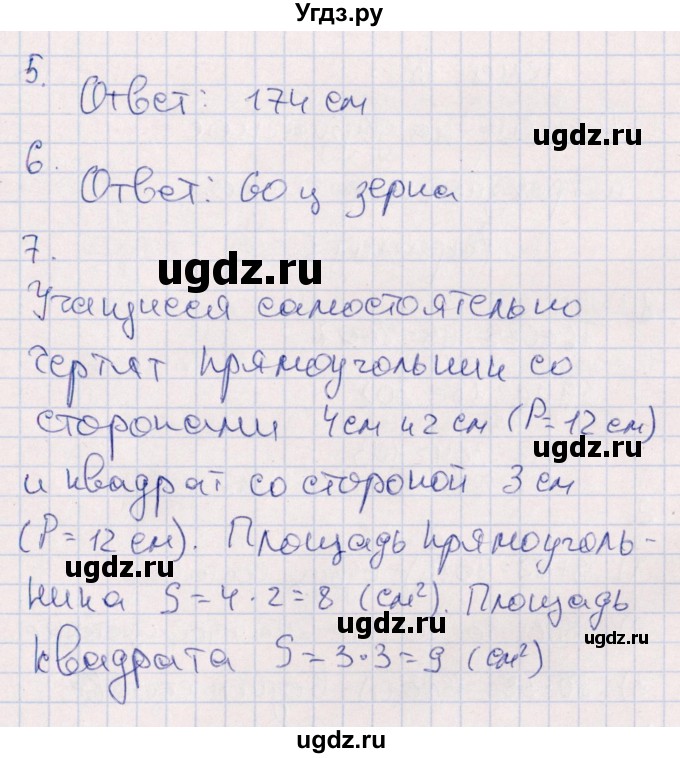 Угдз.ру
5.
Ответ: 174 см
ugdz.ru
6.
Ответ: 60 ц зерна
ugdz.ru
7.
ugdz.ru
Учащиеся самостоятельно
чертят прямоугольник со
сторонами 4 см и 2 см (P = 12 см)
ugdz.ru
и квадрат со стороной 3 см
(P = 12 см). Площадь прямоуголь-
ugdz.ru
ника S = 4 · 2 = 8 (см²). Площадь
ugdz.ru
ugdz.ru
квадрата S = 3 · 3 = 9 (см²)
ugdz.ru
ugdz.ru